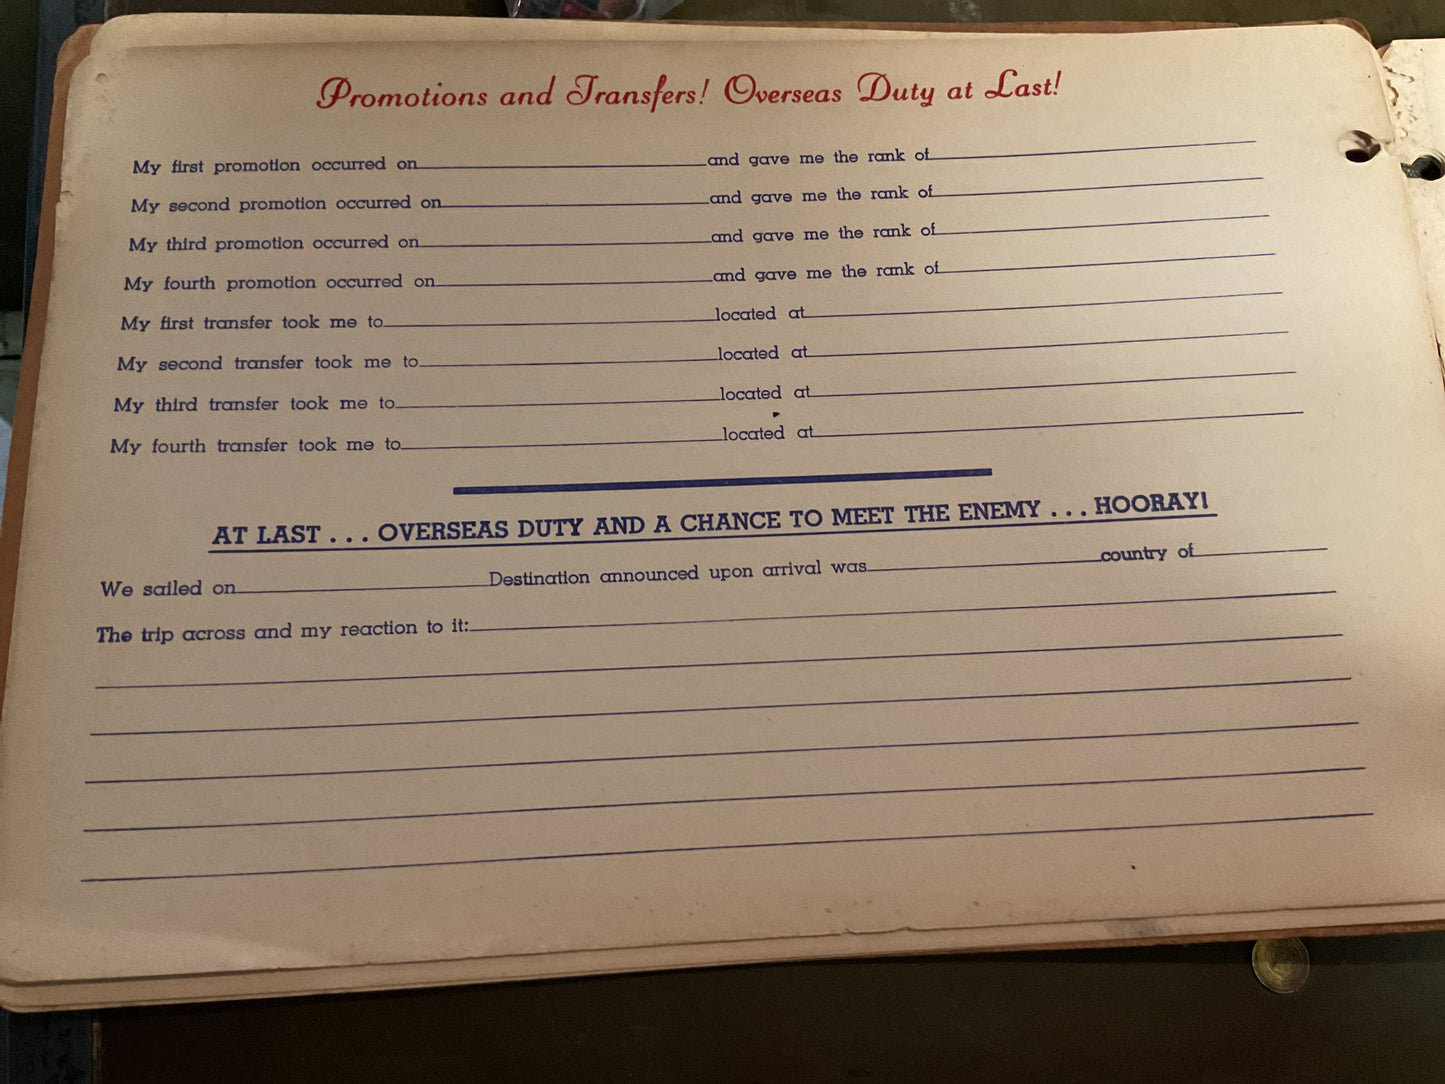 Promotions and Transfers! Overseas Duty at Last!
My first promotion occurred on and gave me the rank of
My second promotion occurred on and gave me the rank of
My third promotion occurred on and gave me the rank of
My fourth promotion occurred on and gave me the rank of
My first transfer took me to located at
My second transfer took me to located at
My third transfer took me to located at
My fourth transfer took me to located at
AT LAST . . . OVERSEAS DUTY AND A CHANCE TO MEET THE ENEMY . . . HOORAY!
We sailed on Destination announced upon arrival was country of
The trip across and my reaction to it: